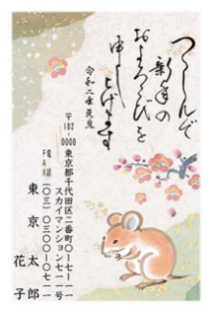 つつしんで
新年の
およろこびを
申し上げます
令和二年元旦
〒102-0000
東京都千代田区二番町〇-七-一一
スカイマンション七一一号
電話 (〇三) 〇三〇〇-〇七一一
FAX (〇三) 〇三〇〇-〇七一一
東京 太郎
花子